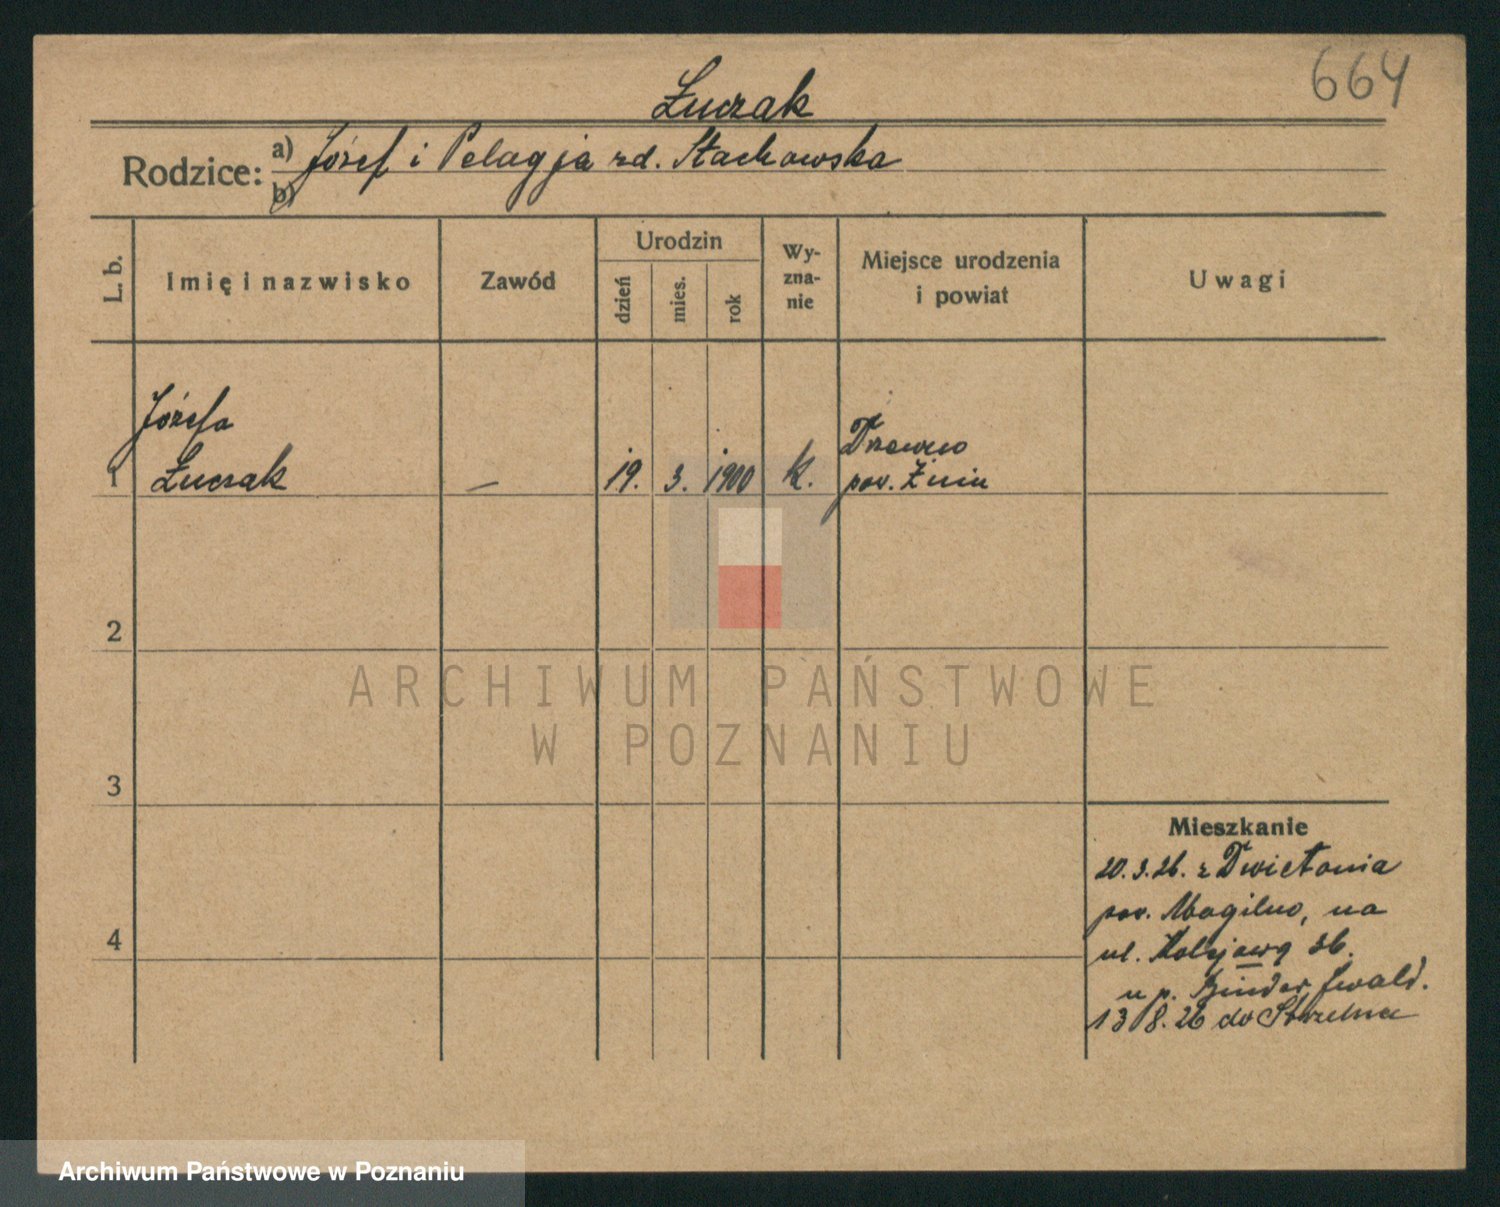 664
Łuczak
Rodzice: a) Józef i Pelagja zd. Stachowska
b)
L. b.
Imię i nazwisko
Zawód
Urodzin
dzień
mies.
rok
Wy-
zna-
nie
Miejsce urodzenia
i powiat
Uwagi
Józefa
1 Łuczak — 19. 3. 1900 k.
pov. Żnin
2
3
4
ARCHIWUM PAŃSTWOWE
W POZNANIU
Mieszkanie
20.3.26. z
pov. Mogilno, na
ul. 36.
u p.
13/8.26 do Strzelna
Archiwum Państwowe w Poznaniu